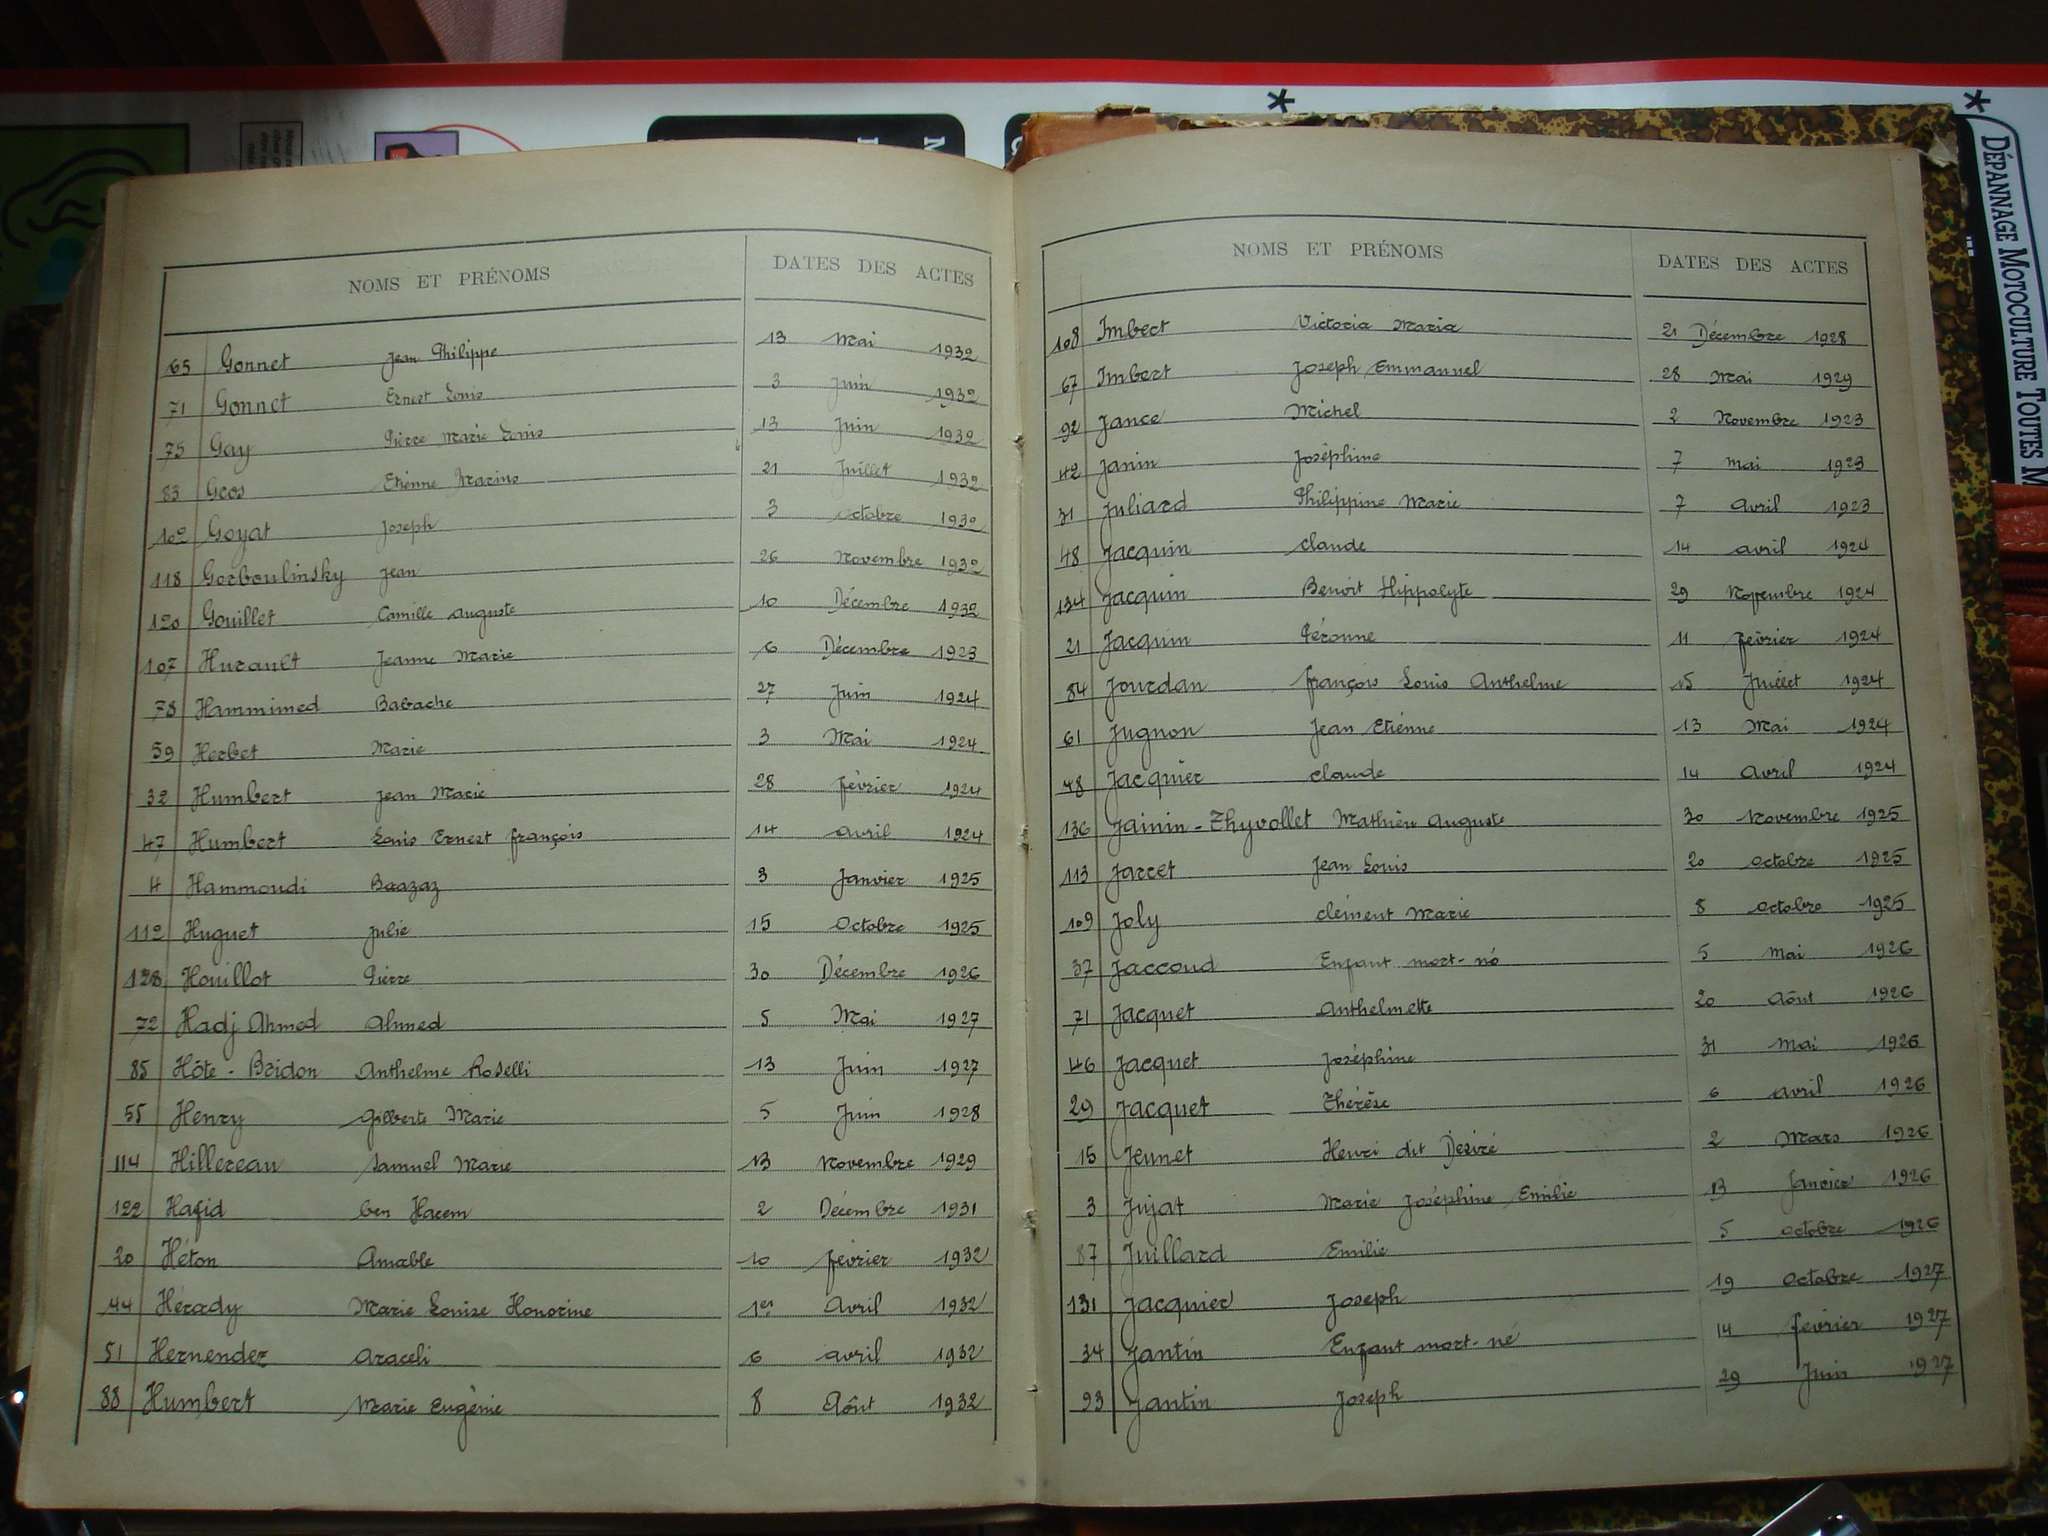 DÉPANNAGE MOTOCULTURE TOUTES M
NOMS ET PRÉNOMS DATES DES ACTES
65 Gonnet Jean Philippe 13 Mai 1932
71 Gonnet Ernest Louis 3 Juin 1932
75 Gay Pierre Marie Louis 13 Juin 1932
83 Gros Etienne Marius 21 Juillet 1932
102 Goyat Joseph 3 Octobre 1932
118 Gorboulinsky Jean 26 Novembre 1932
120 Gouillet Camille Auguste 10 Décembre 1932
107 Hurault Jeanne Marie 6 Décembre 1923
78 Hammimed Babache 27 Juin 1924
59 Herbet Marie 3 Mai 1924
32 Humbert Jean Marie 28 février 1924
47 Humbert Louis Ernest françois 14 avril 1924
4 Hammoudi Baazaz 3 Janvier 1925
112 Huguet Julie 15 Octobre 1925
128 Houillot Pierre 30 Décembre 1926
72 Hadj Ahmed Ahmed 5 Mai 1927
85 Hôte - Bridon Anthelme Roselli 13 Juin 1927
55 Henry Gilberte Marie 5 Juin 1928
114 Hillereau Samuel Marie 13 Novembre 1929
122 Hafid ben Hacem 2 Décembre 1931
20 Héton Amable 10 février 1932
44 Hérady Marie Louise Honorine 1er Avril 1932
51 Hernendez Araceli 6 avril 1932
88 Humbert Marie Eugènie 8 Aôut 1932
NOMS ET PRÉNOMS DATES DES ACTES
108 Imbert Victoria Maria 21 Décembre 1928
67 Imbert Joseph Emmanuel 28 Mai 1929
92 Jance Michel 2 Novembre 1923
42 Janin Joséphine 7 Mai 1923
31 Juliard Philippine Marie 7 Avril 1923
48 Jacquin Claude 14 avril 1924
134 Jacquin Benoit Hippolyte 29 Novembre 1924
21 Jacquin Péronne 11 février 1924
84 Jourdan françois Louis Anthelme 15 Juillet 1924
61 Jugnon Jean Etiénne 13 Mai 1924
48 Jacquier Claude 14 Avril 1924
136 Jainin - Thyvollet Mathieu Auguste 30 Novembre 1925
113 Jarcet Jean Louis 20 octobre 1925
109 Joly Clément Marie 8 octobre 1925
37 Jaccoud Enfant mort-né 5 Mai 1926
71 Jacquet Anthelmette 20 Aôut 1926
46 Jacquet Joséphine 31 Mai 1926
29 Jacquet Thérèse 6 avril 1926
15 Jeunet Henri dit Désiré 2 Mars 1926
3 Jujat Marie Joséphine Emilie 13 Janvier 1926
87 Juillard Emilie 5 octobre 1926
131 Jacquier Joseph 19 octobre 1927
34 Jantin Enfant mort-né 14 février 1927
93 Jantin Joseph 29 Juin 1927